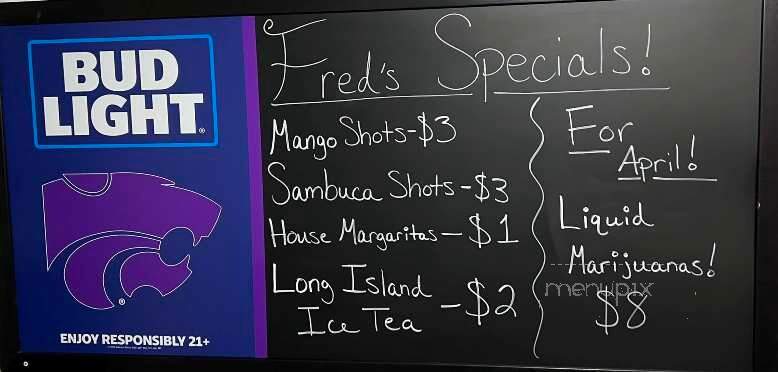 BUD
LIGHT
ENJOY RESPONSIBLY 21+
Fred's Specials!
Mango Shots-$3
Sambuca Shots-$3
House Margaritas-$1
Long Island
Ice Tea -$2
For
April!
Liquid
Marijuanas!
menupix
$8